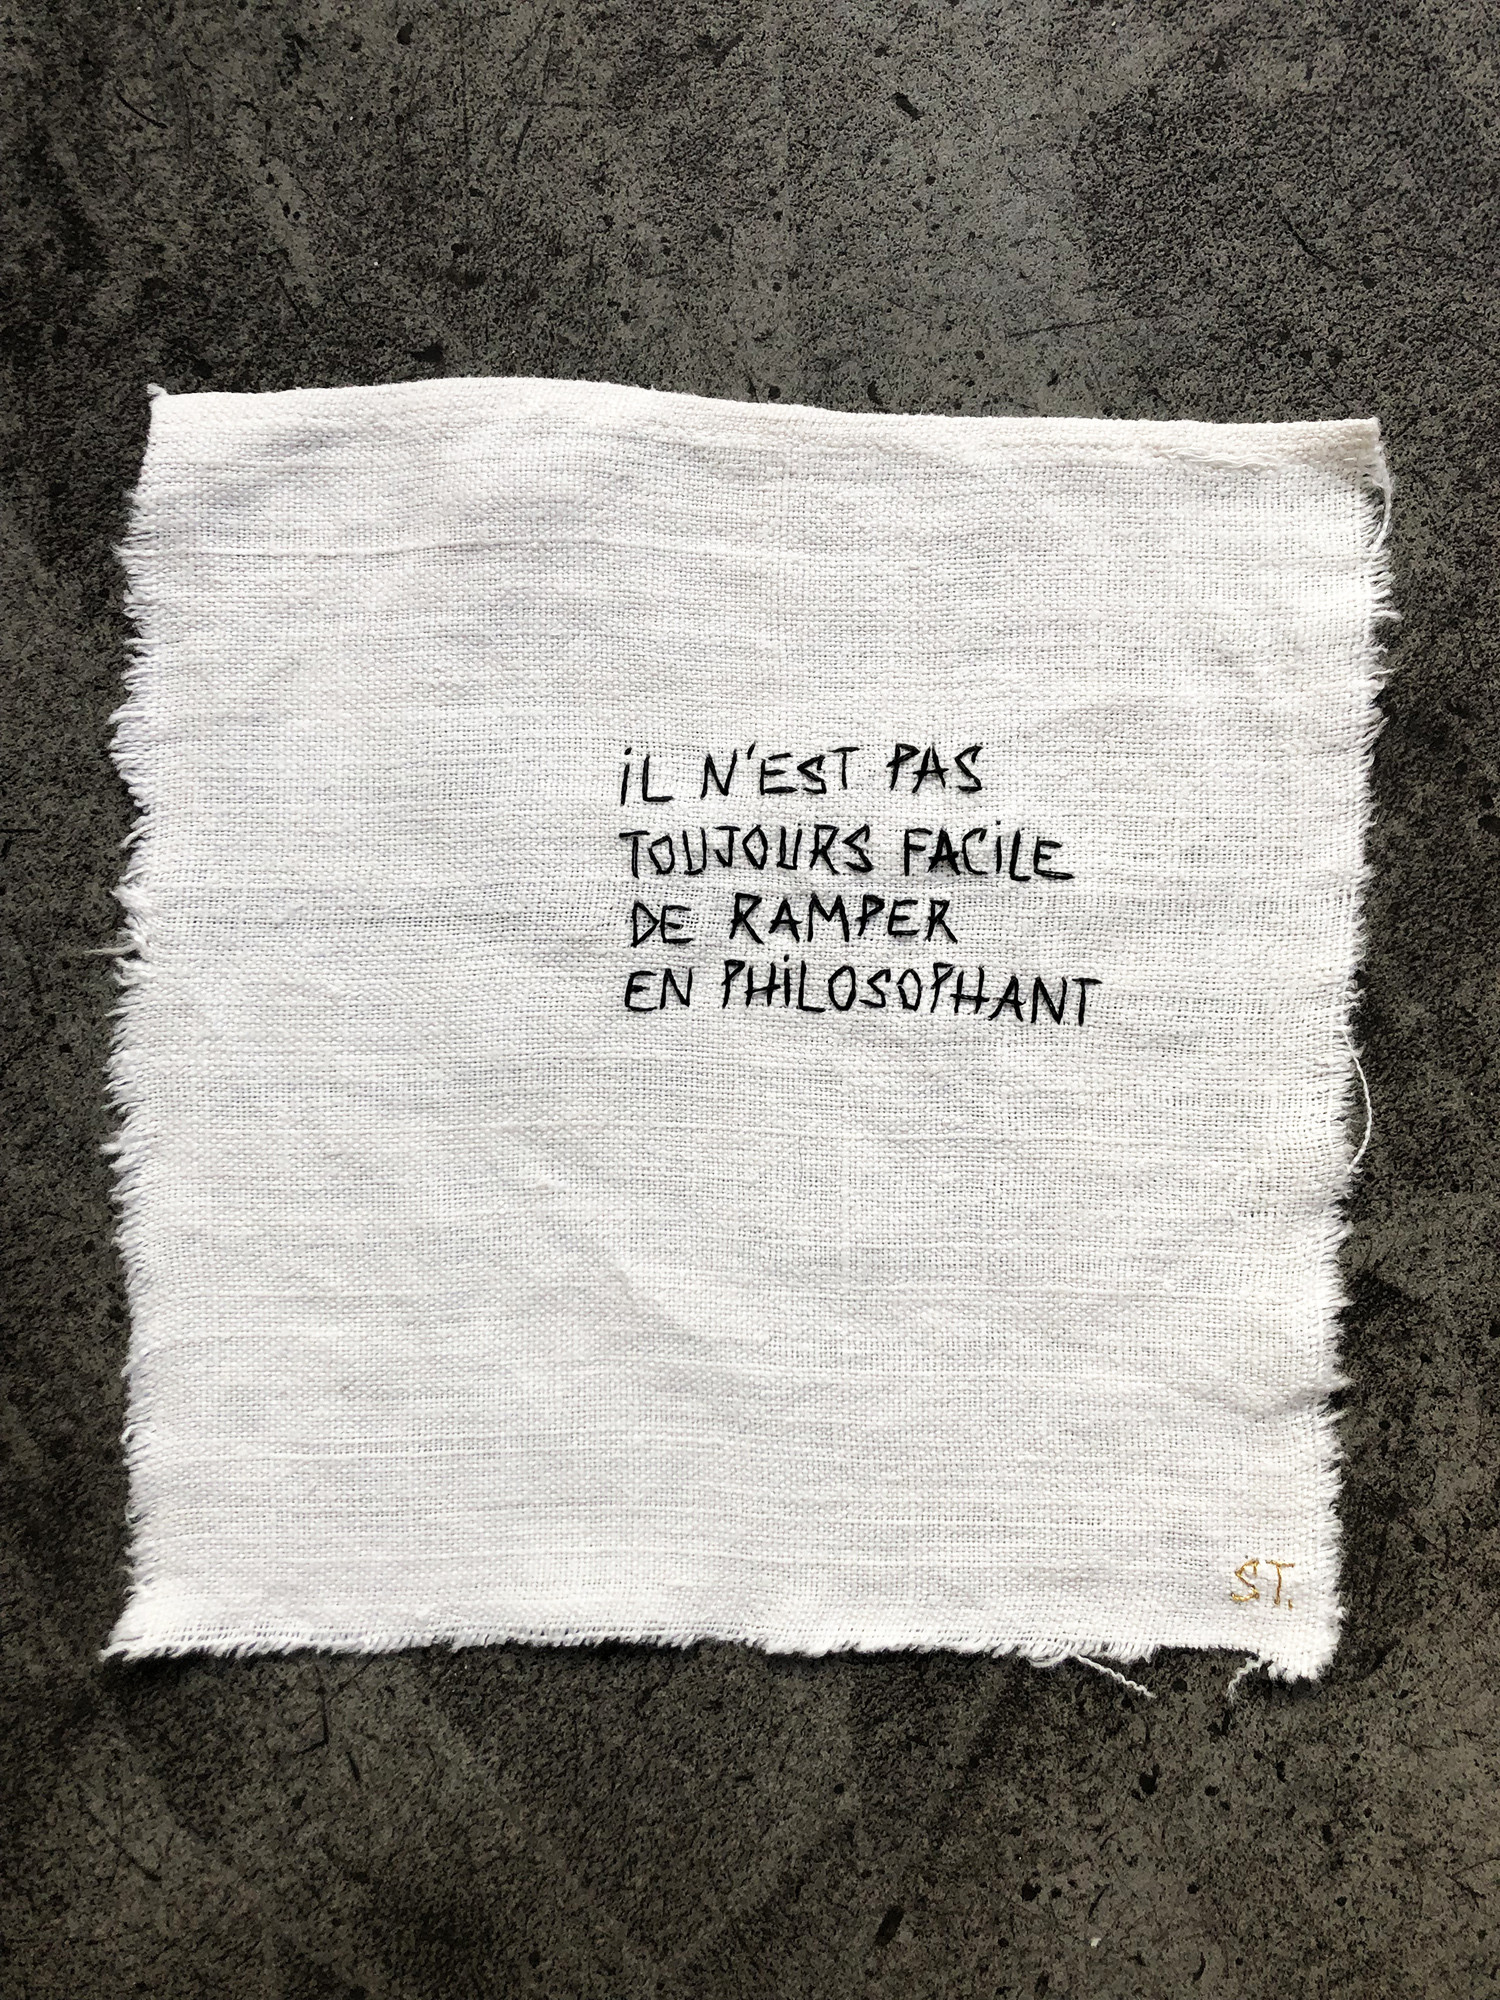 iL N'EST PAS
TOUJOURS FACiLE
DE RAMPER
EN PHiLOSOPHANT
ST.